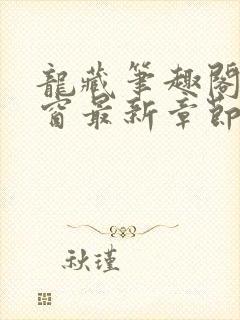 龍藏筆趣閣
窗最新章節
秋瑾